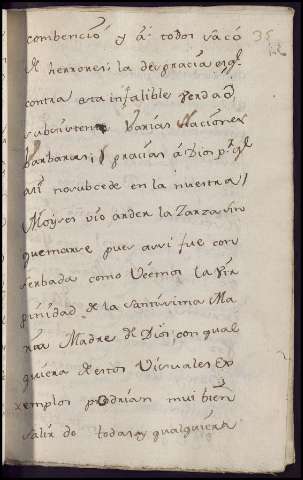 combencio y á todos sacó 35
de herrores; la desgracia es q.e
contra esta infalible verdad
subsisten barias Naciones
barbaras; y gracias á Dios p.r q.e
asi no subcede en la nuestra,
Moyses vio arder la Zarza sin
quemarse pues assi fue con
serbada como Vemos la Vir
ginidad de la santissima Ma
ria Madre de Dios; con qual
quiera de estos Visuales Ex
xemplos podrian mui bien
salir de todas y qualquiera